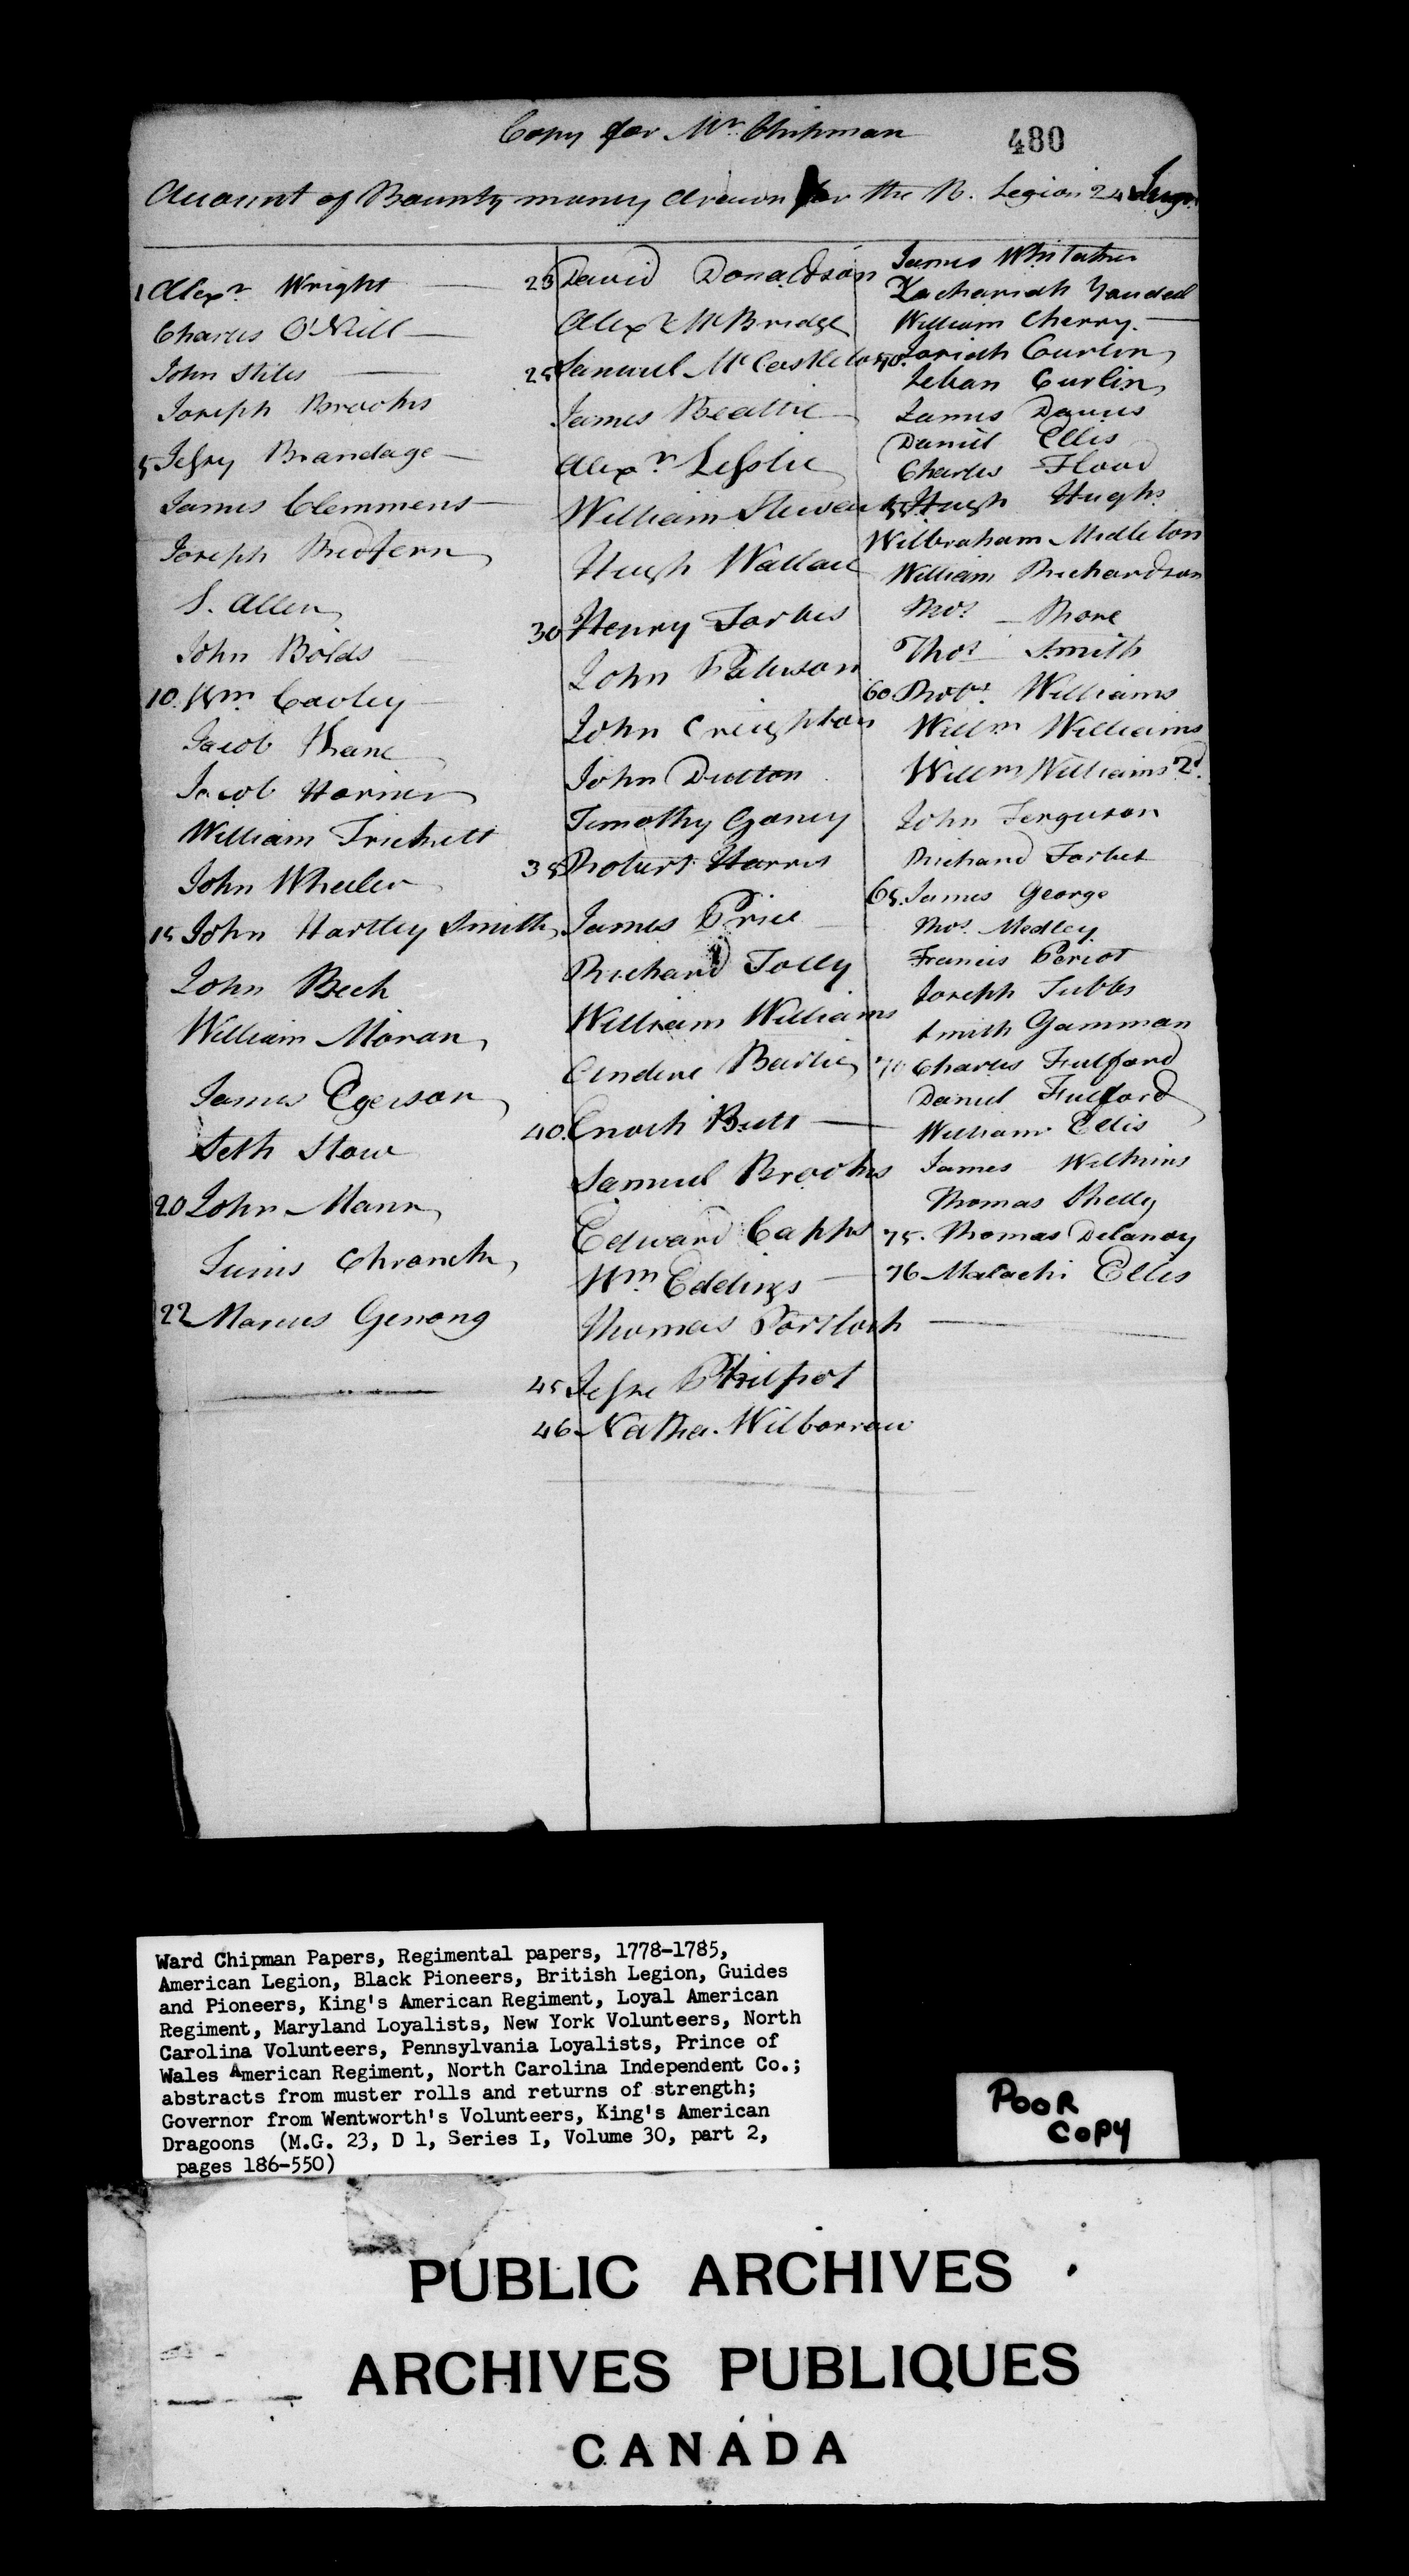 Copy for Mr. Chipman
480
Account of Bounty money drawn for the B. Legion 24 Augt.
1 Alexr. Wright
Charles O'Neill
John Stiles
Joseph Brooks
5 Jessy Brandage
James Clemmens
Joseph Bredfern
S. Allen
John Bolds
10. Wm. Cavley
Jacob Shane
Jacob Horner
William Trickett
John Wheeler
15 John Hartley Smith
John Beck
William Moran
James Egerson
Seth Stow
20 John Mann
Junis Chronch
22 Marcus Genong
23 David Donaldson
Alexr. McBridge
25 Samuel McCaskele
James Beattie
Alexr. Leslie
William Stewart
Hugh Wallace
30 Henry Forbes
John Paterson
John Creighton
John Dutton
Timothy Ganey
35 Robert Harris
James Price
Richard Jolly
William Williams
Andrew Bailie
40. Enoch Butt
Samuel Brooks
Edward Capps
Wm. Eddings
Thomas Portlock
45 Jesse Philpot
46 Natha. Wilborrow
James Whitaker
Zachariah Yandell
William Cherry.
50. Josiah Curlin
Leban Curlin
James Davis
Daniel Ellis
Charles Flood
55 Hugh Hughs
Wilbraham Midleton
William Richardson
Thos. Shore
Thos. Smith
60 Robt. Williams
Willm. Williams
Willm. Williams 2d.
John Ferguson
Richard Forbes
65. James George
Thos. Medley
Francis Periot
Joseph Tubbs
Smith Gamman
70 Charles Fulford
Daniel Fulford
William Ellis
James Wilkins
Thomas Shelly
75. Thomas Delanoy
76 Malachi Ellis
Ward Chipman Papers, Regimental papers, 1778-1785,
American Legion, Black Pioneers, British Legion, Guides
and Pioneers, King's American Regiment, Loyal American
Regiment, Maryland Loyalists, New York Volunteers, North
Carolina Volunteers, Pennsylvania Loyalists, Prince of
Wales American Regiment, North Carolina Independent Co.;
abstracts from muster rolls and returns of strength;
Governor from Wentworth's Volunteers, King's American
Dragoons (M.G. 23, D 1, Series I, Volume 30, part 2,
pages 186-550)
POOR
COPY
PUBLIC ARCHIVES
ARCHIVES PUBLIQUES
CANADA